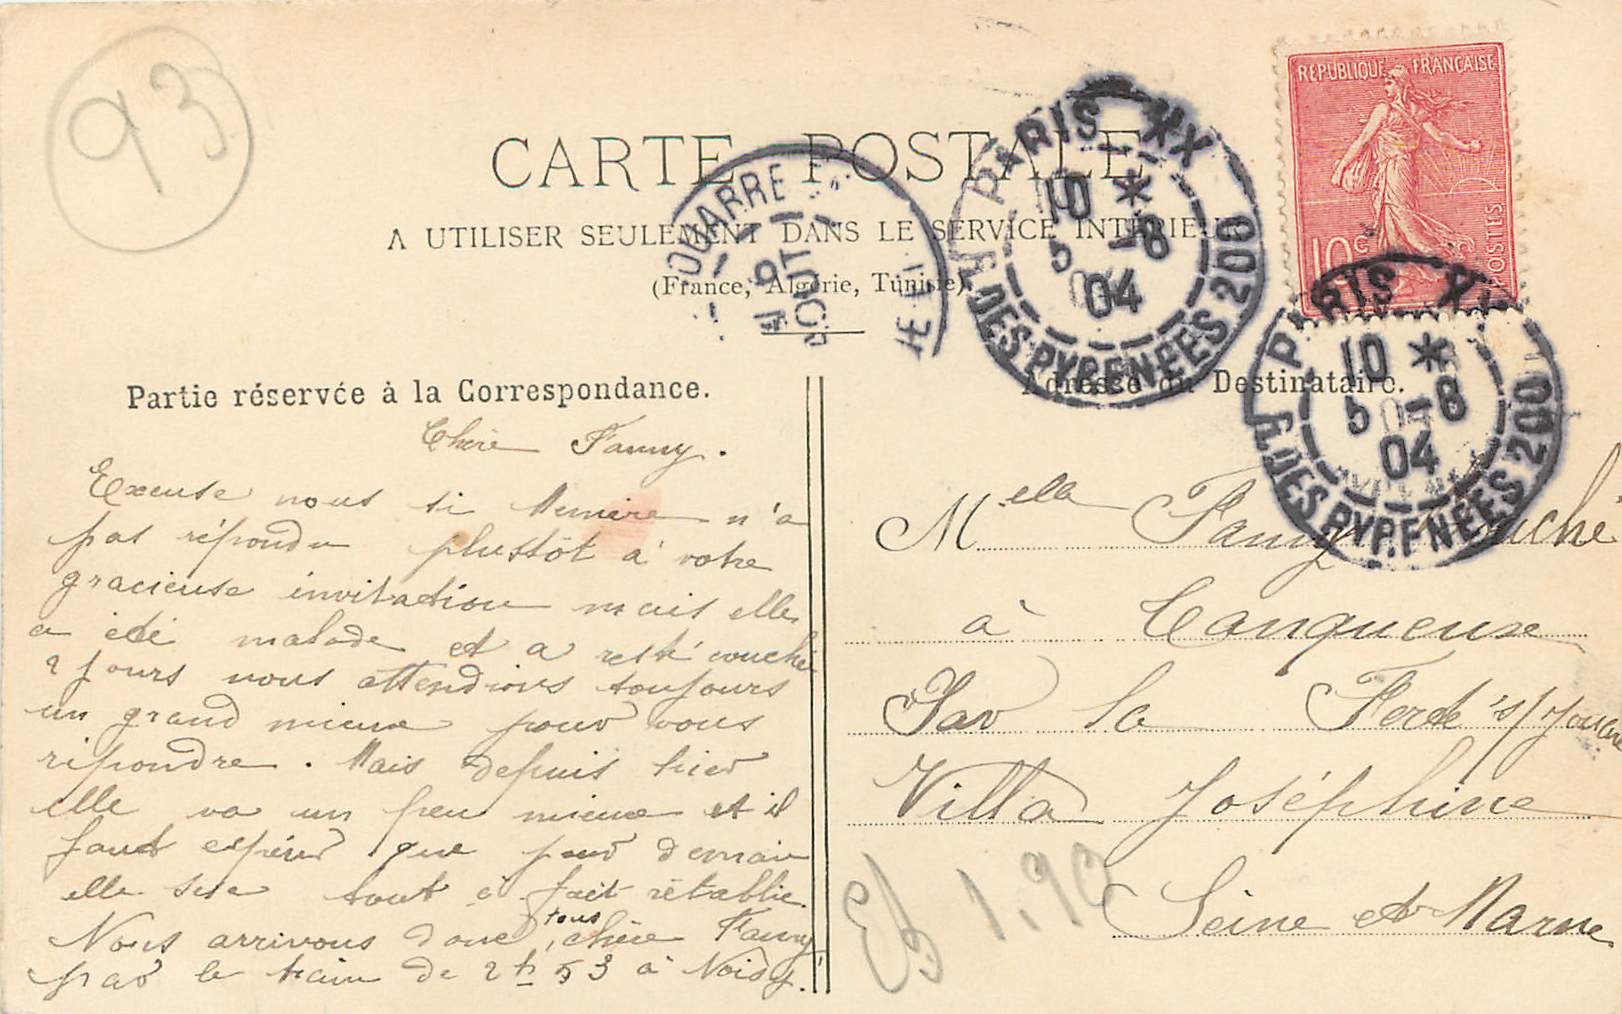 93
CARTE POSTALE
A UTILISER SEULEMENT DANS LE SERVICE INTERIEUR
(France, Algérie, Tunisie)
RÉPUBLIQUE FRANÇAISE
10c
POSTES
OUARRE
AOUT
PARIS XX
10 *
5 -8
04
R. DES PYRENEES 200
PARIS XX
10 *
5 -8
04
R. DES PYRENEES 200
Partie réservée à la Correspondance.
Chère Fanny.
Excuse nous si Memère n'a
pas répondu plustôt à votre
gracieuse invitation mais elle
a été malade et a resté couché
2 jours nous attendions toujours
un grand mieux pour vous
répondre. Mais depuis hier
elle va un peu mieux et il
faut espérer que pour demain
elle sera tout à fait rétablie.
Nous arrivons donc, tous chère Fanny
par le train de 2h 53 à Noisy.
Adresse du Destinataire.
Melle Fanny
à Tanqueuse
Par la Ferté s/Jouarre
Villa Joséphine
Seine et Marne
1.90